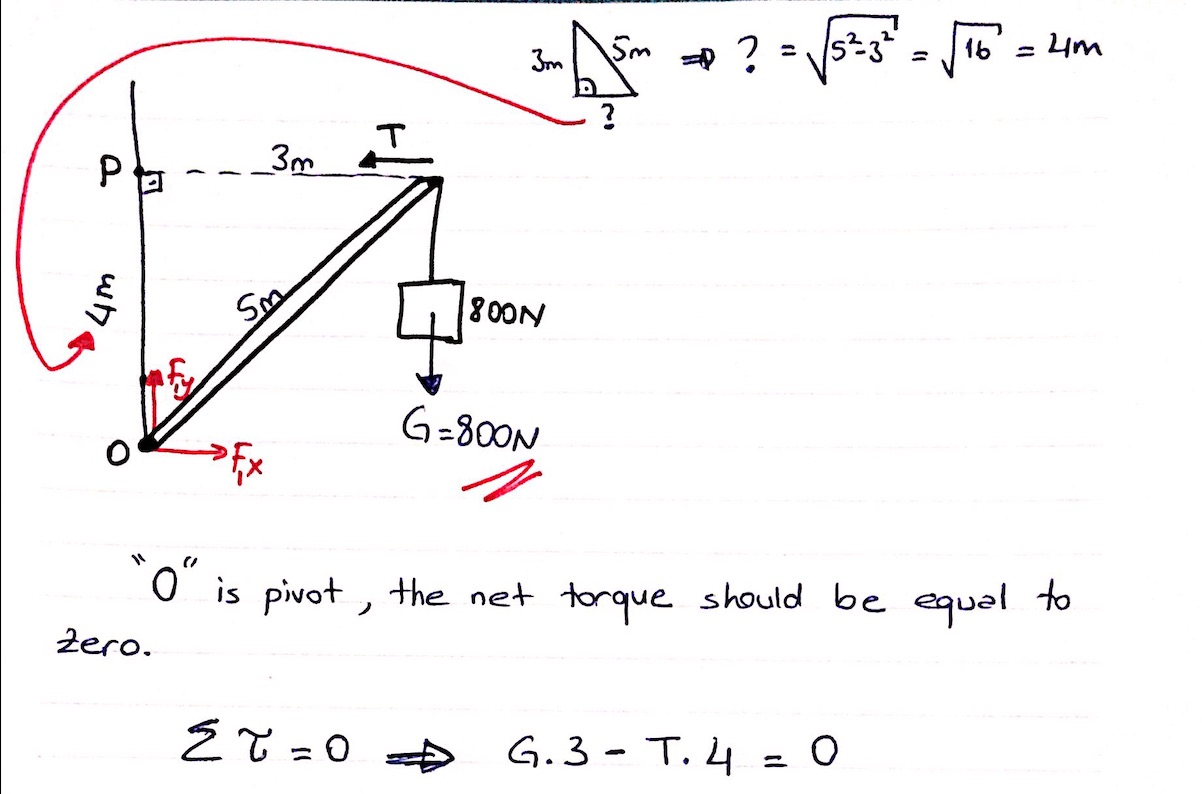 3m 5m ⇒ ? = √5²-3² = √16 = 4m
?
T
P 3m
4m
5m
800N
F₁y
G=800N
O F₁x
"O" is pivot, the net torque should be equal to
zero.
Στ=0 ⇒ G.3 - T.4 = 0